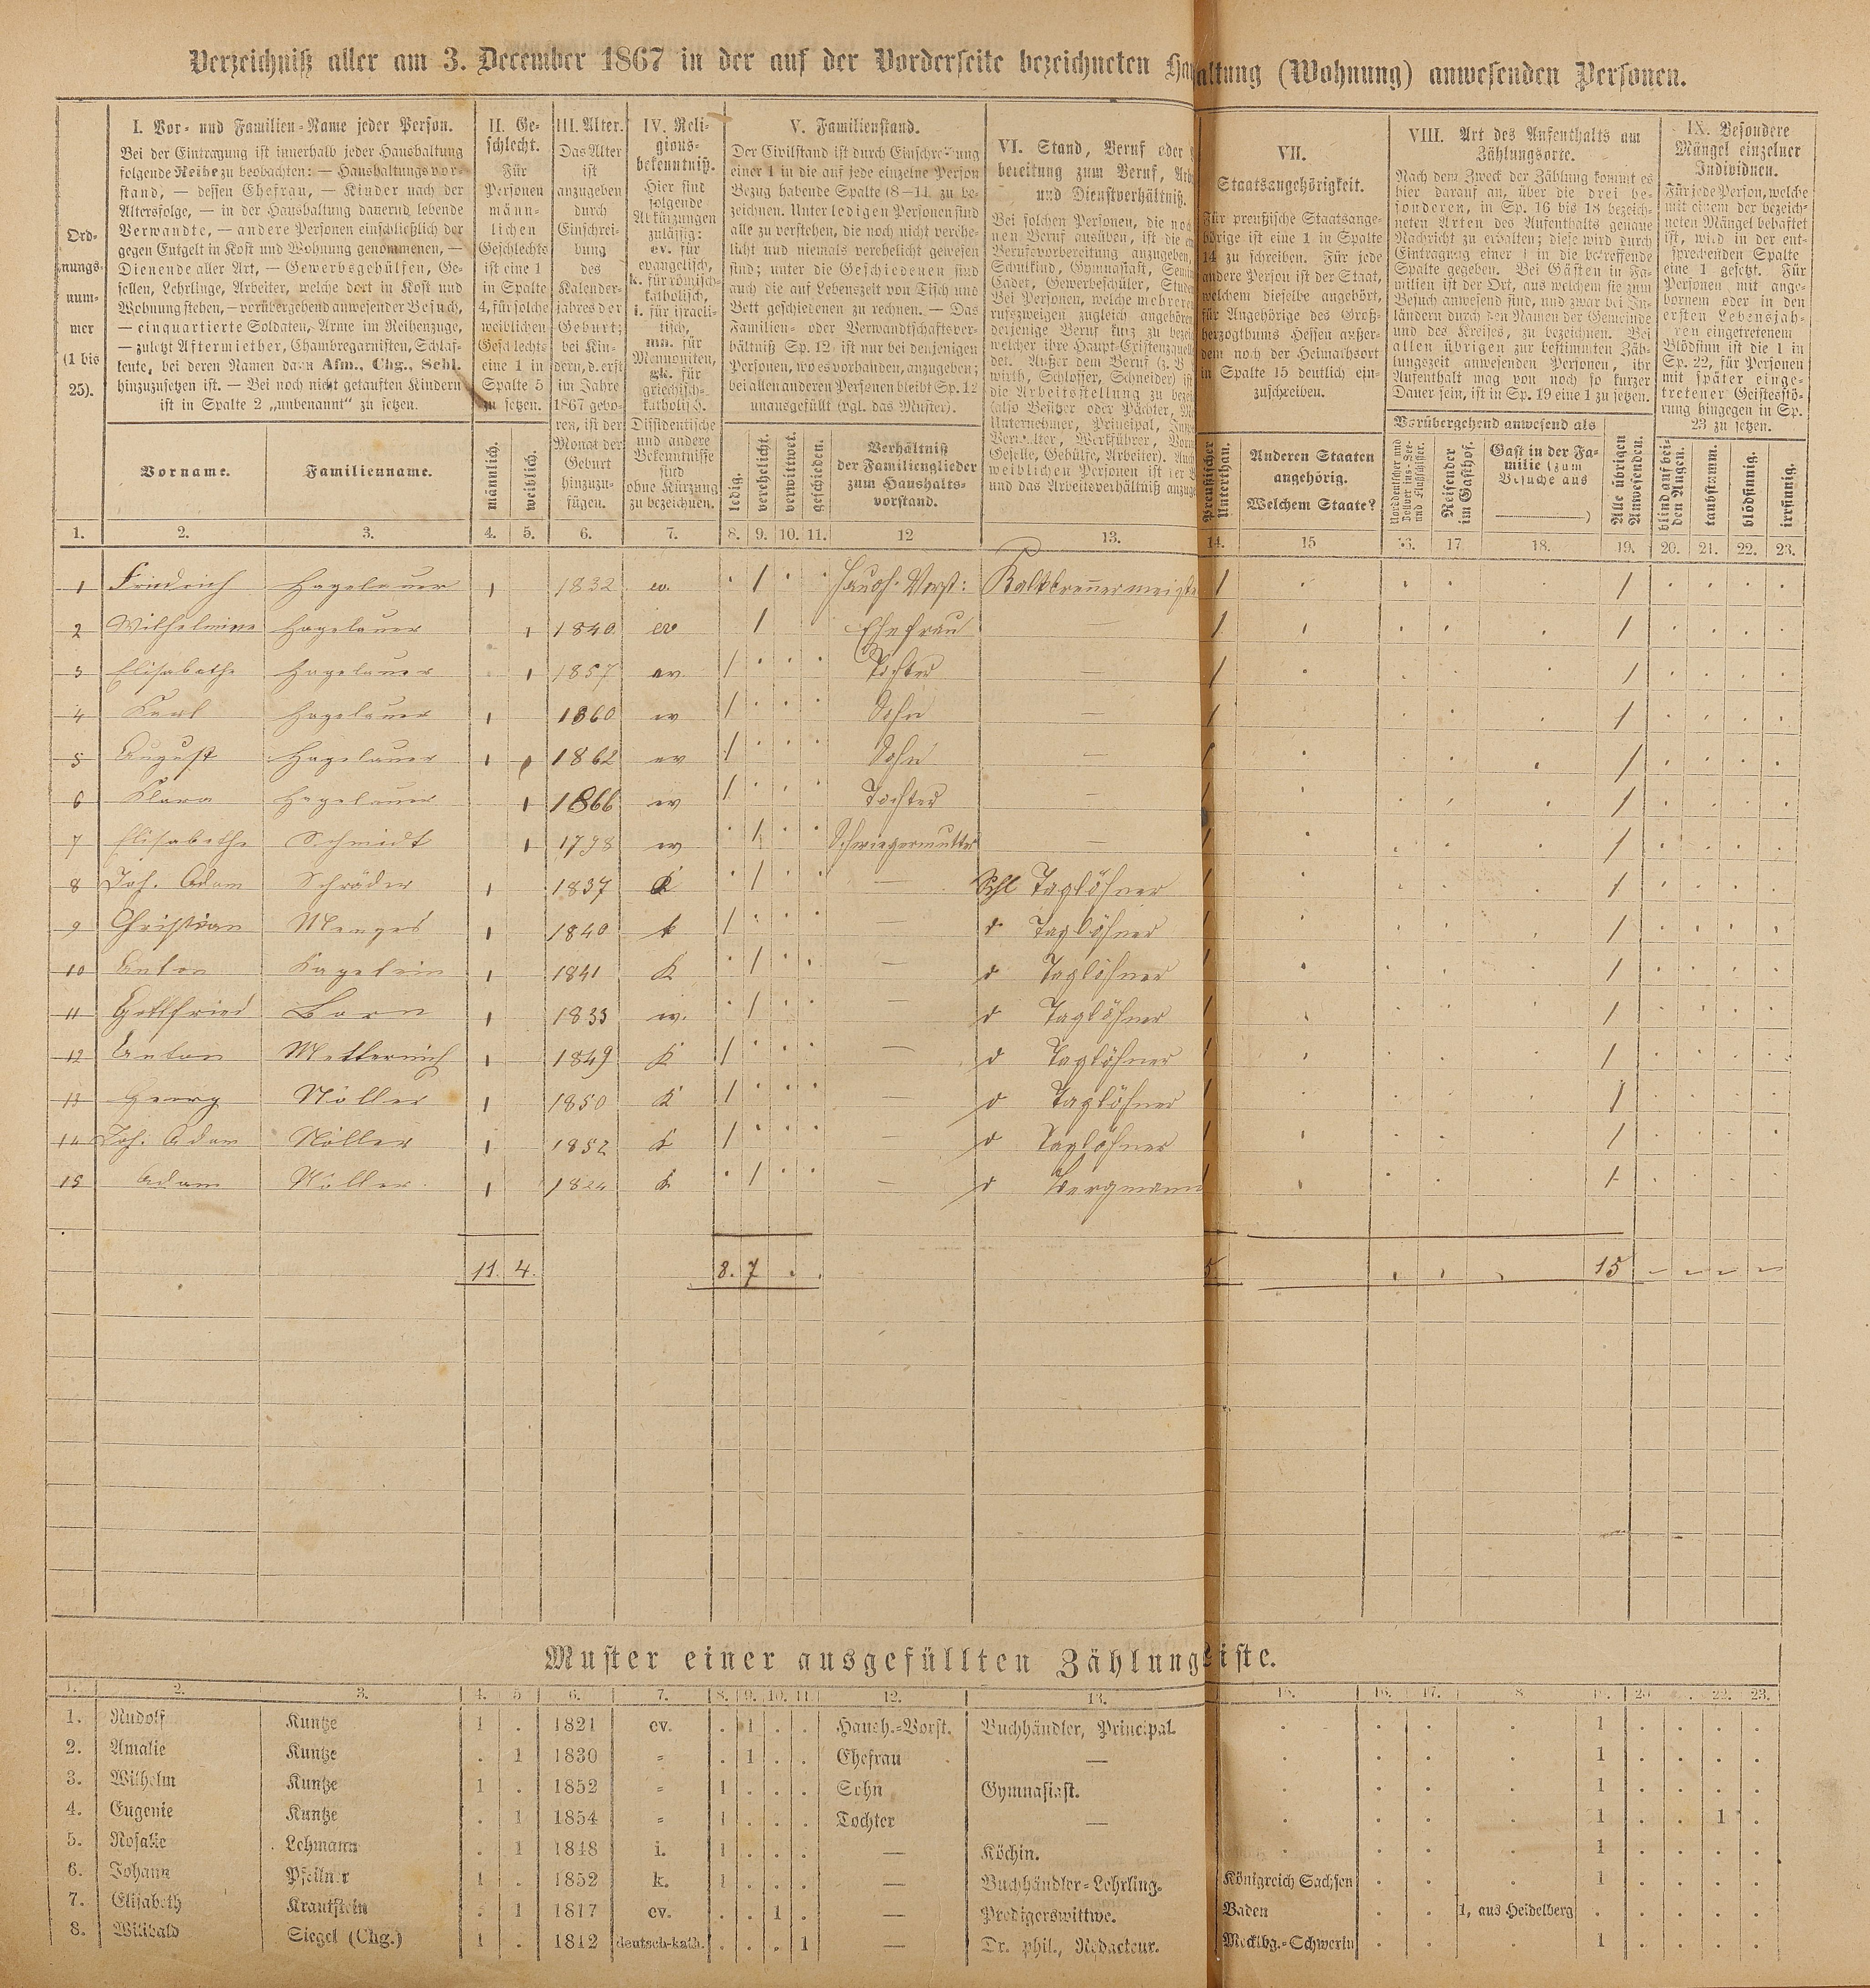 Verzeichniß aller am 3. December 1867 in der auf der Vorderseite bezeichneten Ha altung (Wohnung) anwesenden Personen.
Ord-
nungs-
num-
mer
(1 bis
25).
I. Vor- und Familien-Name jeder Person.
Bei der Eintragung ist innerhalb jeder Haushaltung
folgende Reihe zu beobachten: — Haushaltungsvor-
stand, — dessen Ehefrau, — Kinder nach der
Altersfolge, — in der Haushaltung dauernd lebende
Verwandte, — andere Personen einschließlich der
gegen Entgelt in Kost und Wohnung genommenen, —
Dienende aller Art, — Gewerbsgehülfen, Ge-
sellen, Lehrlinge, Arbeiter, welche dort in Kost und
Wohnung stehen, — vorübergehend anwesender Besuch,
— einquartierte Soldaten, Arme im Reihenzuge,
— zuletzt Aftermiether, Chambregarnisten, Schlaf-
leute, bei deren Namen dann Afm., Chg., Schl.
hinzuzusetzen ist. — Bei noch nicht getauften Kindern
ist in Spalte 2 „unbenannt“ zu setzen.
Vorname. Familienname.
II. Ge-
schlecht.
Für
Personen
männ-
lichen
Geschlechts
ist eine 1
in Spalte
4, für solche
weiblichen
Geschlechts
eine 1 in
Spalte 5
zu setzen.
männlich. weiblich.
III. Alter.
Das Alter
ist
anzugeben
durch
Einschrei-
bung
des
Kalender-
jahres der
Geburt;
bei Kin-
dern, d. erst
im Jahre
1867 gebo-
ren, ist der
Monat der
Geburt
hinzuzu-
fügen.
IV. Reli-
gions-
bekenntniß.
Hier sind
folgende
Abkürzungen
zulässig:
ev. für
evangelisch,
k. für römisch-
katholisch,
i. für israeli-
tisch,
mn. für
Mennoniten,
gk. für
griechisch-
katholisch.
Dissidentische
und andere
Bekenntnisse
sind
ohne Kürzung
zu bezeichnen.
V. Familienstand.
Der Civilstand ist durch Einschreibung
einer 1 in die auf jede einzelne Person
Bezug habende Spalte (8—11) zu be-
zeichnen. Unter ledigen Personen sind
alle zu verstehen, die noch nicht verehe-
licht und niemals verehelicht gewesen
sind; unter die Geschiedenen sind
auch die auf Lebenszeit von Tisch und
Bett geschiedenen zu rechnen. — Das
Familien- oder Verwandtschaftsver-
hältniß Sp. 12 ist nur bei denjenigen
Personen, wo es vorhanden, anzugeben;
bei allen anderen Personen bleibt Sp. 12
unausgefüllt (vgl. das Muster).
ledig. verehelicht. verwittwet. geschieden.
Verhältniß
der Familienglieder
zum Haushalts-
vorstand.
VI. Stand, Beruf oder
bereitung zum Beruf, Arb
und Dienstverhältniß.
Bei solchen Personen, die noch
nen Beruf ausüben, ist die
Berufsvorbereitung anzugeben,
Schulkind, Gymnasiast, Semi
Cadet, Gewerbeschüler, Stude
Bei Personen, welche mehrere
rufszweigen zugleich angehören
derjenige Beruf kurz zu bezei
welcher ihre Haupt-Existenzquelle
det. Außer dem Beruf (z. B.
wirth, Schlosser, Schneider) ist
die Arbeitsstellung zu bezei
(also Besitzer oder Pächter, M
Unternehmer, Principal,
Verwalter, Werkführer,
Geselle, Gehülfe, Arbeiter). Auch
weiblichen Personen ist der B
und das Arbeitsverhältniß anzug
VII.
Staatsangehörigkeit.
Für preußische Staatsange-
hörige ist eine 1 in Spalte
14 zu schreiben. Für jede
andere Person ist der Staat,
welchem dieselbe angehört,
für Angehörige des Groß-
herzogthums Hessen außer-
dem noch der Heimathsort
in Spalte 15 deutlich ein-
zuschreiben.
Preußischer
Unterthan.
Anderen Staaten
angehörig.
Welchem Staate?
VIII. Art des Aufenthalts am
Zählungsorte.
Nach dem Zweck der Zählung kommt es
hier darauf an, über die drei be-
sonderen, in Sp. 16 bis 18 bezeich-
neten Arten des Aufenthalts genaue
Nachricht zu erhalten; diese wird durch
Eintragung einer 1 in die betreffende
Spalte gegeben. Bei Gästen in Fa-
milien ist der Ort, aus welchem sie zum
Besuch anwesend sind, und zwar bei In-
ländern durch den Namen der Gemeinde
und des Kreises, zu bezeichnen. Bei
allen übrigen zur bestimmten Zäh-
lungszeit anwesenden Personen, ihr
Aufenthalt mag von noch so kurzer
Dauer sein, ist in Sp. 19 eine 1 zu setzen.
Vorübergehend anwesend als
Norddeutscher und
Zollverins-See-
und Flußschiffer.
Reisender
im Gasthof.
Gast in der Fa-
milie (zum
Besuche aus
)
Alle übrigen
Anwesenden.
IX. Besondere
Mängel einzelner
Individuen.
Für jede Person, welche
mit einem der bezeich-
neten Mängel behaftet
ist, wird in der ent-
sprechenden Spalte
eine 1 gesetzt. Für
Personen mit ange-
bornem oder in den
ersten Lebensjah-
ren eingetretenem
Blödsinn ist die 1 in
Sp. 22, für Personen
mit später einge-
tretener Geistesstö-
rung hingegen in Sp.
23 zu setzen.
blind auf bei-
den Augen.
taubstumm.
blödsinnig.
irrsinnig.
1. 2. 3. 4. 5. 6. 7. 8. 9. 10. 11. 12 13. 14. 15 16. 17 18. 19. 20. 21. 22. 23.
1 Friedrich Hagelauer 1 1832 ev. 1 Haush. Vorst: Kalkbrennermeiste 1 1
2 Wilhelmine Hagelauer 1 1840 ev 1 Ehefrau 1 1
3 Elisabethe Hagelauer 1 1857 ev 1 Tochter — 1 1
4 Karl Hagelauer 1 1860 ev 1 Sohn — 1 1
5 August Hagelauer 1 1862 ev 1 Sohn — 1 1
6 Klara Hagelauer 1 1866 ev 1 Tochter — 1 1
7 Elisabethe Schmidt 1 1798 ev 1 Schwiegermutter — 1 1
8 Joh. Adam Schräder 1 1837 K 1 — Schl Taglöhner 1 1
9 Christian Menges 1 1840 k 1 — d Taglöhner 1 1
10 Anton 1 1841 K 1 — d Taglöhner 1 1
11 Gottfried Born 1 1833 ev. 1 — d Taglöhner 1 1
12 Anton Metternich 1 1849 K 1 — d Taglöhner 1 1
13 Georg Nöller 1 1850 K 1 — d Taglöhner 1 1
14 Joh. Adam Nöller 1 1852 K 1 — d Taglöhner 1 1
15 Adam Nöller 1 1824 K 1 — d Bergmann 1 1
11. 4. 8. 7 5 15
Muster einer ausgefüllten Zählung liste.
1. 2. 3. 4. 5 6. 7. 8. 9. 10. 11. 12. 13. 15. 16. 17. 8 19. 20 22. 23.
1. Rudolf Kuntze 1 . 1821 ev. . 1 . . Haush.-Vorst. Buchhändler, Principal. . . . . 1 . . . .
2. Amalie Kuntze . 1 1830 = . 1 . . Ehefrau — . . . . 1 . . . .
3. Wilhelm Kuntze 1 . 1852 = 1 . . . Sohn Gymnasiast. . . . . 1 . . . .
4. Eugenie Kuntze . 1 1854 = 1 . . . Tochter — . . . . 1 . . 1 .
5. Rosalie Lehmann . 1 1848 i. 1 . . . — Köchin. . . . . 1 . . . .
6. Johann Pfeilner 1 . 1852 k. 1 . . . — Buchhändler-Lehrling. Königreich Sachsen . . . 1 . . . .
7. Elisabeth Krautstein . 1 1817 ev. . . 1 . — Predigerswittwe. Baden . . 1, aus Heidelberg . . . . .
8. Willibald Siegel (Chg.) 1 . 1812 deutsch-kath. . . . 1 — Dr. phil., Redacteur. Mecklbg.-Schwerin . . . 1 . . . .